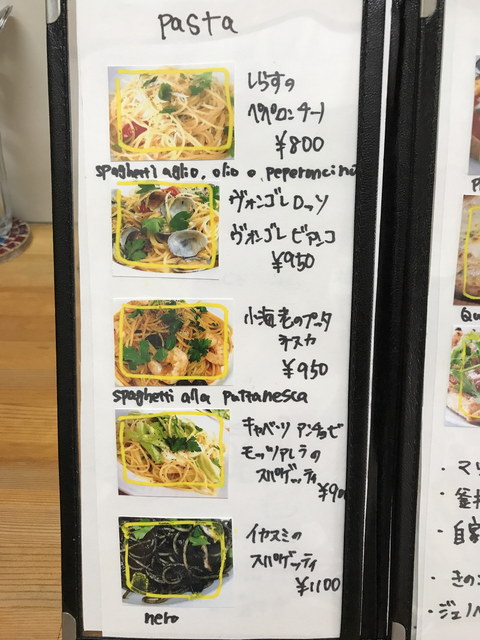 pasta
しらすの
ペペロンチーノ
¥800
spaghetti aglio, olio e peperoncino
ヴォンゴレロッソ
ヴォンゴレビアンコ
¥950
小海老のプッタ
ネスカ
¥950
spaghetti alla puttanesca
キャベツ アンチョビ
モッツァレラの
スパゲッティ
¥90
イカスミの
スパゲッティ
¥1100
nero
・マリ
・自家
・きの
・ジェノベ